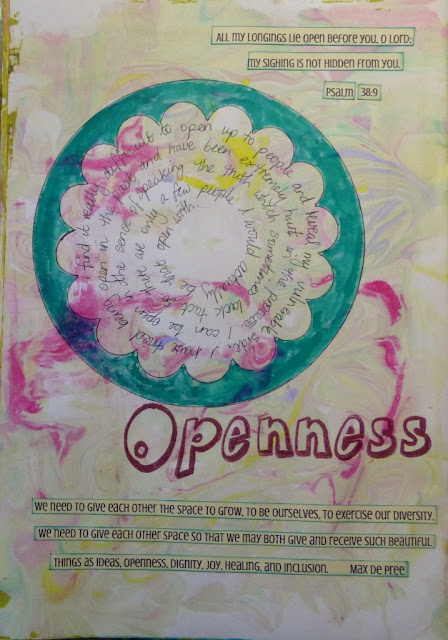 ALL MY LONGINGS LIE OPEN BEFORE YOU, O LORD;
MY SIGHING IS NOT HIDDEN FROM YOU.
PSALM 38:9
I find it really difficult to open up to people and reveal my vulnerable side. I have tried
being open in the past and have been extremely hurt in the process. I can be open
in the sense of speaking the truth which sometimes lack tact so
there are only a few people I would actually be that
open with.
Openness
WE NEED TO GIVE EACH OTHER THE SPACE TO GROW, TO BE OURSELVES, TO EXERCISE OUR DIVERSITY.
WE NEED TO GIVE EACH OTHER SPACE SO THAT WE MAY BOTH GIVE AND RECEIVE SUCH BEAUTIFUL
THINGS AS IDEAS, OPENNESS, DIGNITY, JOY, HEALING, AND INCLUSION. MAX DE PREE